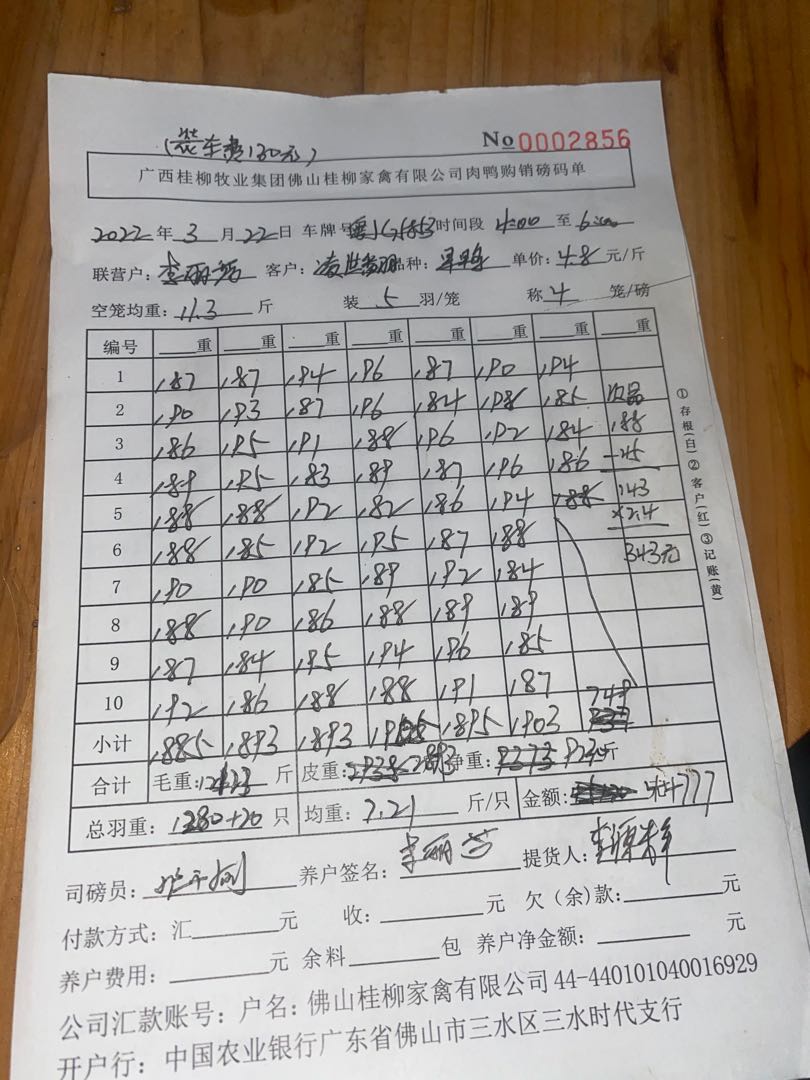 （装车费130元）
No 0002856
广西桂柳牧业集团佛山桂柳家禽有限公司肉鸭购销磅码单
2022年 3 月 22 日 车牌号 时间段 4:00 至 6:00
联营户: 李丽芳 客户: 品种: 单价: 4.8 元/斤
空笼均重: 11.3 斤 装 5 羽/笼 称 4 笼/磅
编号 重 重 重 重 重 重 重 重
1 187 187 194 196 187 190 194
2 190 193 187 196 184 198 185 次品
3 186 195 191 188 196 192 184 188
4 189 195 183 189 187 196 186 -45
5 188 188 192 182 186 194 188 143
6 188 185 192 195 187 188 ×2.4
7 190 190 185 189 192 184 343元
8 188 190 186 188 189 189
9 187 184 195 194 196 185
10 192 186 188 188 191 187 749
小计 1885 1893 1893 1895 1903
合计 毛重: 斤 皮重: 2893 净重: 斤
总羽重: 1280+20 只 均重: 7.21 斤/只 金额: 44777
司磅员: 养户签名: 李丽芳 提货人:
付款方式: 汇 元 收: 元 欠(余)款: 元
养户费用: 元 余料 包 养户净金额: 元
公司汇款账号: 户名: 佛山桂柳家禽有限公司 44-440101040016929
开户行: 中国农业银行广东省佛山市三水区三水时代支行
①存根(白)②客户(红)③记账(黄)